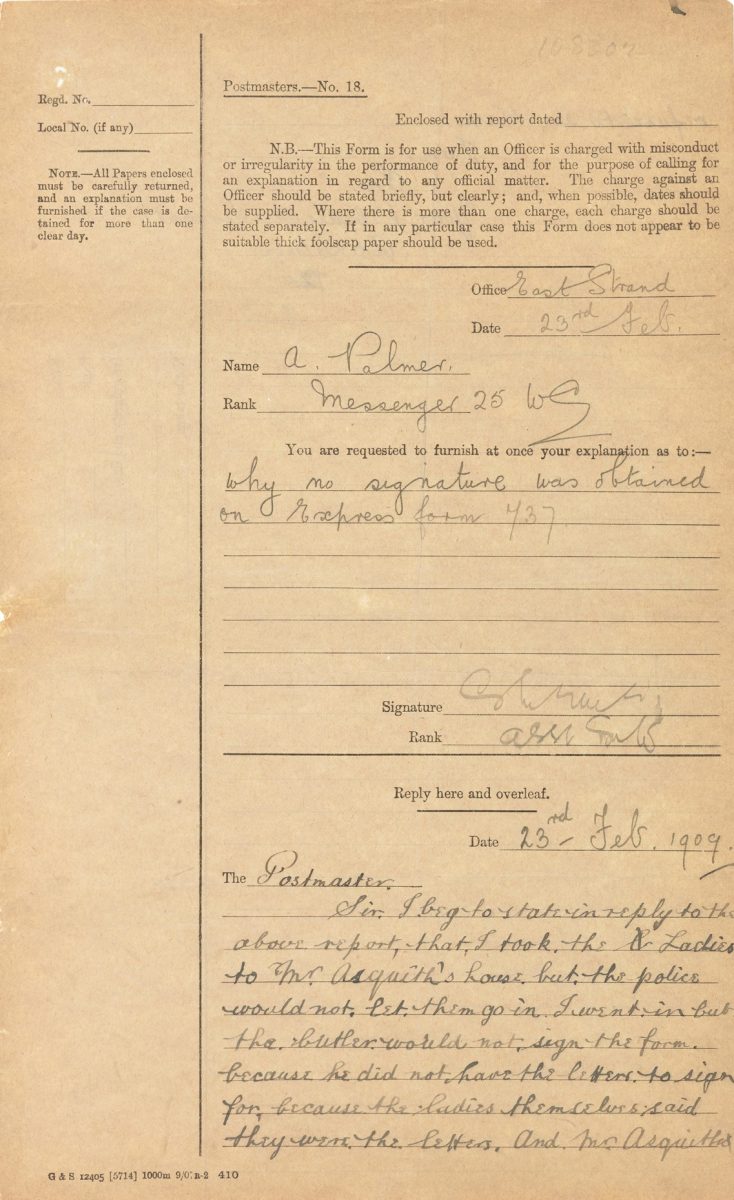 Regd. No.
Local No. (if any)
NOTE.—All Papers enclosed
must be carefully returned,
and an explanation must be
furnished if the case is de-
tained for more than one
clear day.
Postmasters.—No. 18.
Enclosed with report dated
N.B.—This Form is for use when an Officer is charged with misconduct
or irregularity in the performance of duty, and for the purpose of calling for
an explanation in regard to any official matter. The charge against an
Officer should be stated briefly, but clearly; and, when possible, dates should
be supplied. Where there is more than one charge, each charge should be
stated separately. If in any particular case this Form does not appear to be
suitable thick foolscap paper should be used.
Office East Strand
Date 23rd Feb.
Name A. Palmer.
Rank Messenger 25 W
You are requested to furnish at once your explanation as to:—
why no signature was obtained
on Express form 737
Signature
Rank
Reply here and overleaf.
Date 23rd Feb. 1909.
The Postmaster.
Sir. I beg to state in reply to the
above report, that, I took. the Ladies
to Mr. Asquith's house. but. the police
would not. let. them go in. I went in but
the. butler would not. sign the form.
because he did not, have the letters. to sign
for, because the ladies themselves, said
they were the letters. And Mr Asquith's
G & S 12405 [5714] 1000m R-2 410